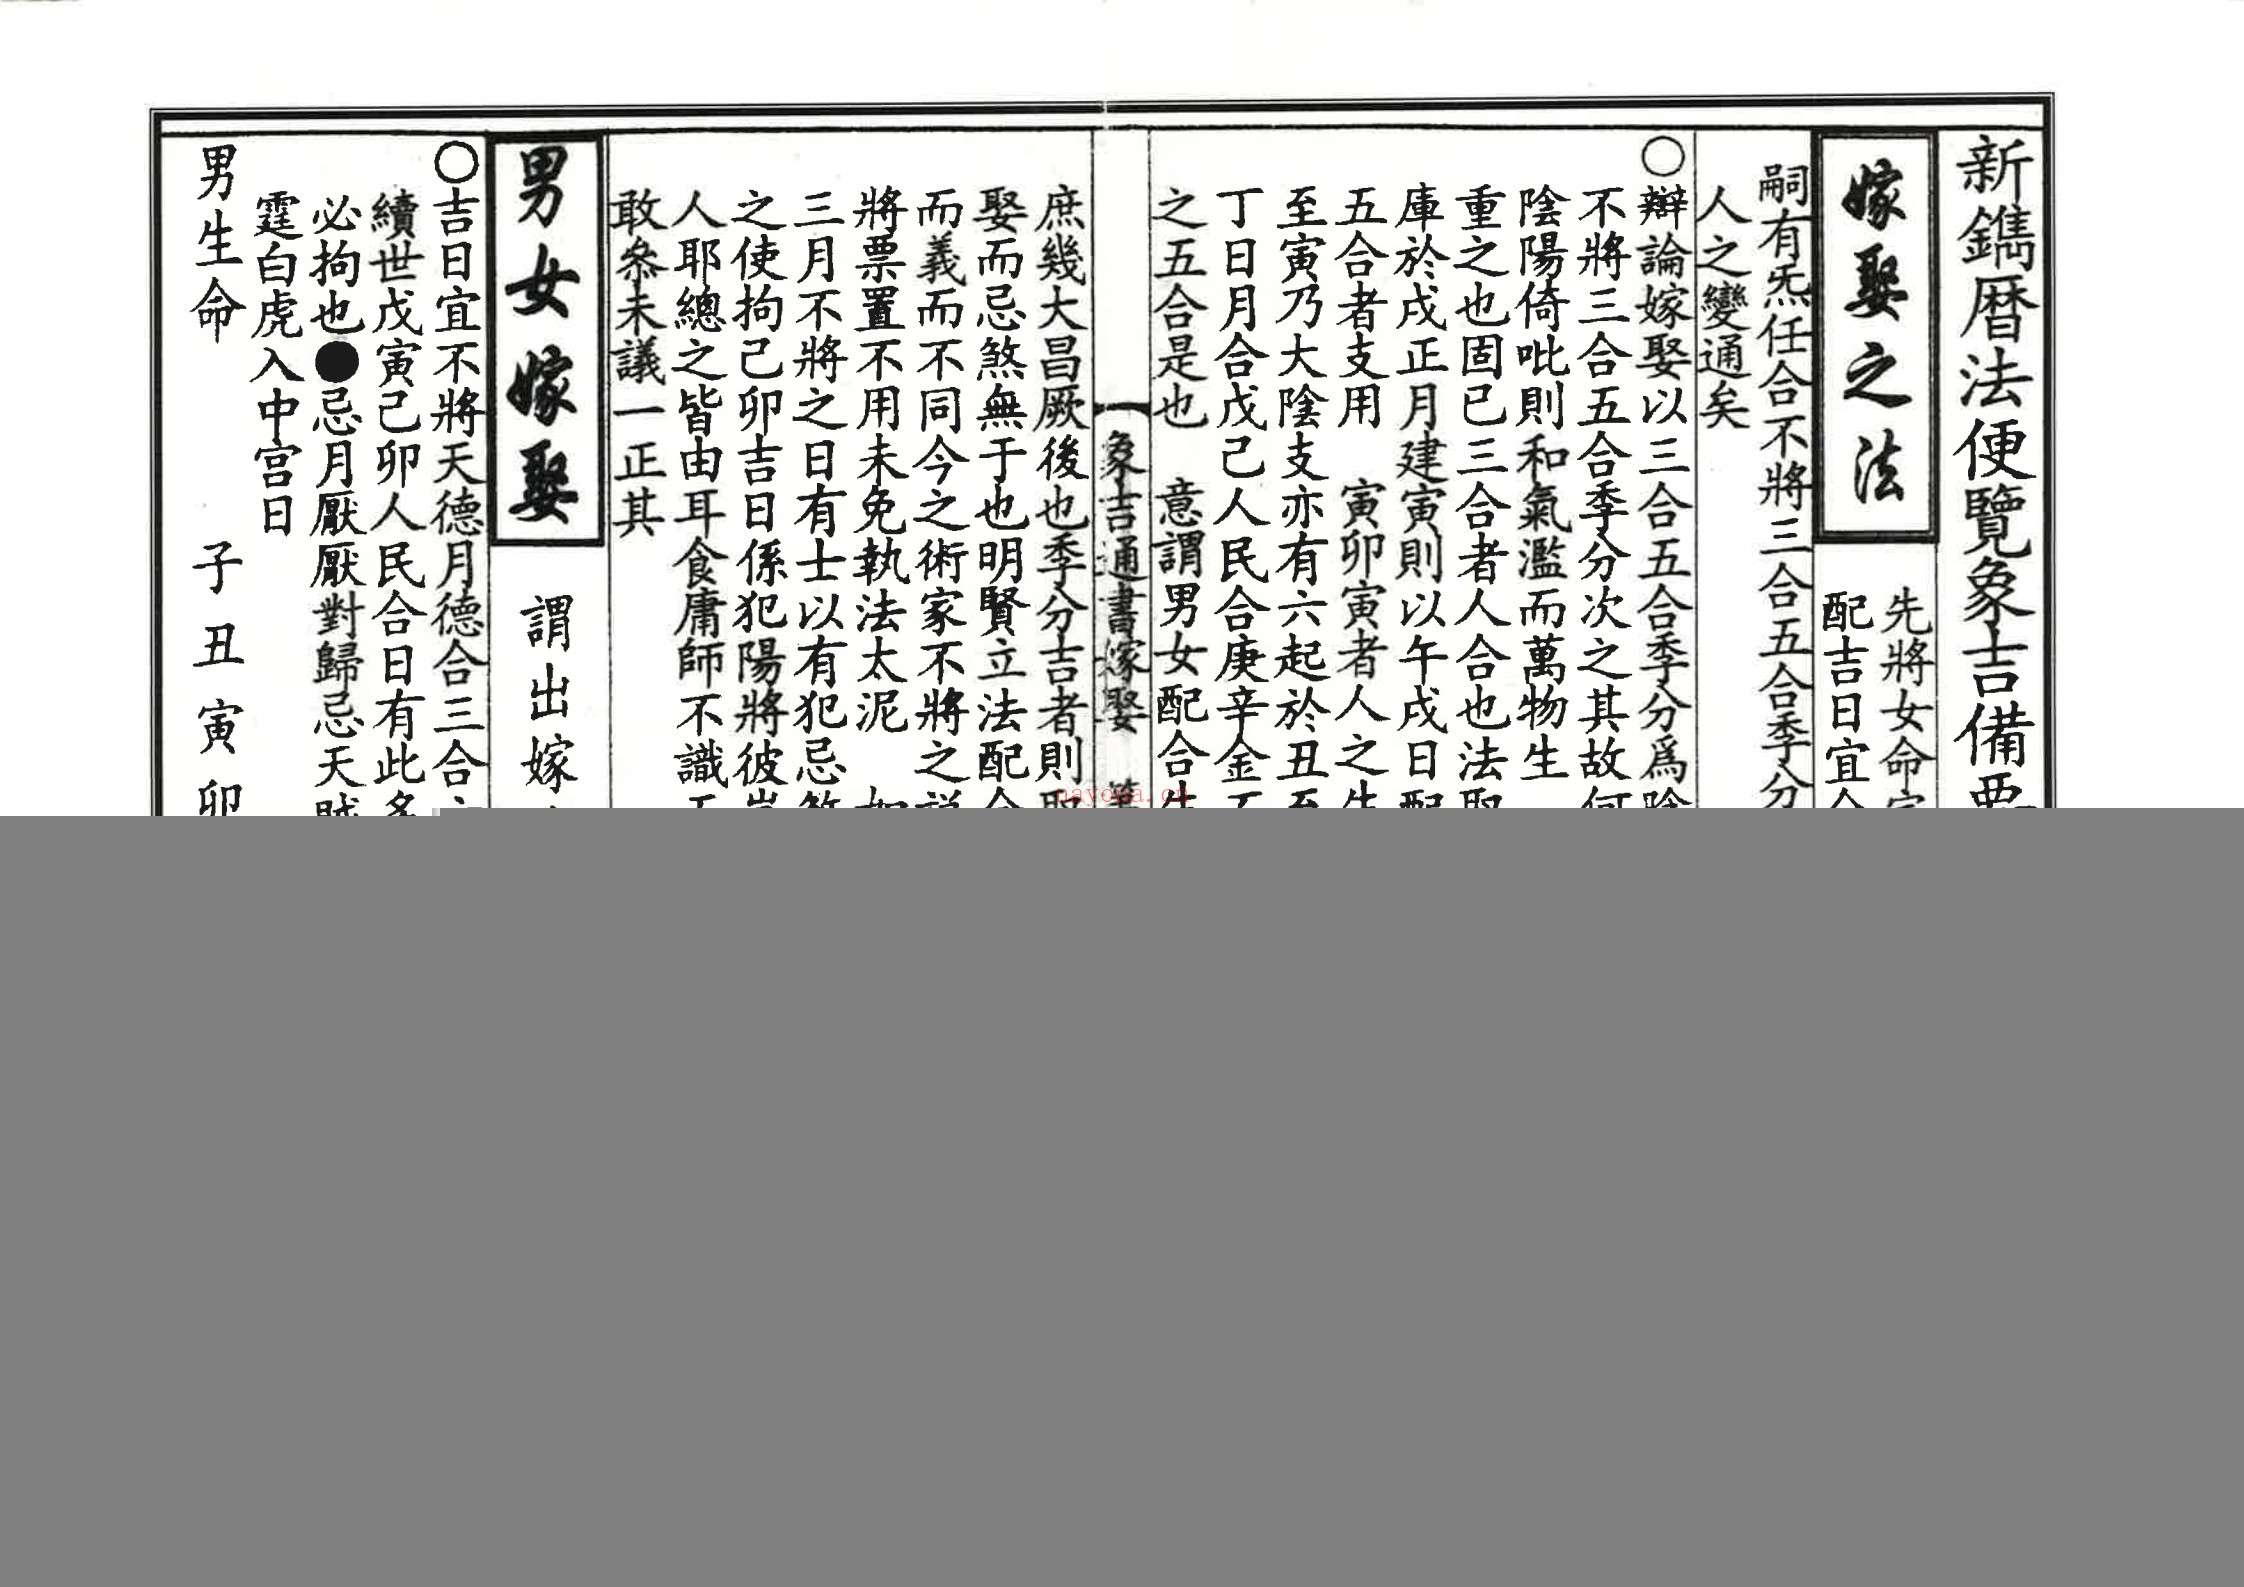 新鐫曆法便覽象吉備要
嫁娶之法
先將女命
配吉日宜
嗣有炁任合不將三合五合季分
人之變通矣
○辯論嫁娶以三合五合季分爲陰
不將三合五合季分次之其故何
陰陽倚吡則和氣濫而萬物生
重之也固已三合者人合也法取
庫於戌正月建寅則以午戌日配
五合者支用 寅卯寅者人之生
至寅乃大陰支亦有六起於丑至
丁日月合戊己人民合庚辛金
之五合是也 意謂男女配合
象吉通書嫁娶
庶幾大昌厥後也季分吉者則
娶而忌煞無于也明賢立法配合
而義而不同今之術家不將之説
將票置不用未免執法太泥 如
三月不將之日有士以有犯忌煞
之使拘己卯吉日係犯陽將彼
人耶總之皆由耳食庸師不識
敢叅未議一正其
男女嫁娶
謂出嫁
○吉日宜不將天德月德合三合
續世戊寅己卯人民合日有此多
必拘也●忌月厭厭對歸忌天賊
霆白虎入中宮日
男生命 子丑寅卯
nayona.cn